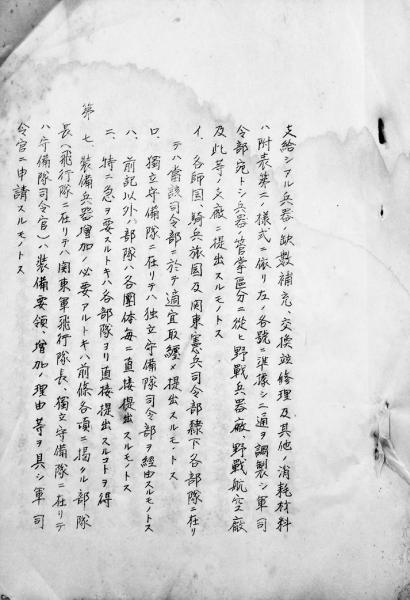 支給シアル兵器ノ缺数補充、交換竝修理及其他ノ消耗材料
ハ附表第二ノ様式ニ依リ左ノ各號ニ準據シ二通ヲ調製シ軍司
令部宛トシ兵器ノ管掌区分ニ從ヒ野戰兵器廠、野戰航空廠
及此等ノ支廠ニ提出スルモノトス
イ、各師団、騎兵旅団及関東憲兵司令部隷下各部隊ニ在リ
テハ當該司令部ニ於テ適宜取纏メ提出スルモノトス
ロ、獨立守備隊ニ在リテハ独立守備隊司令部ヲ經由スルモノトス
ハ、前記以外ノ部隊ハ各團体毎ニ直接提出スルモノトス
ニ、特ニ急ヲ要スルトキハ各部隊ヨリ直接提出スルコトヲ得
第七、裝備兵器増加ノ必要アルトキハ前條各項ニ掲クル部隊
長(飛行隊ニ在リテハ関東軍飛行隊長、獨立守備隊ニ在リテ
ハ守備隊司令官)ハ裝備要領、増加ノ理由等ヲ具シ軍司
令官ニ申請スルモノトス